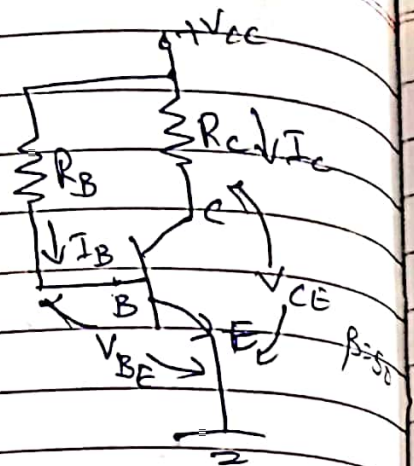 +VCC
RC
IC
RB
C
IB
B
VCE
E
VBE
β=50